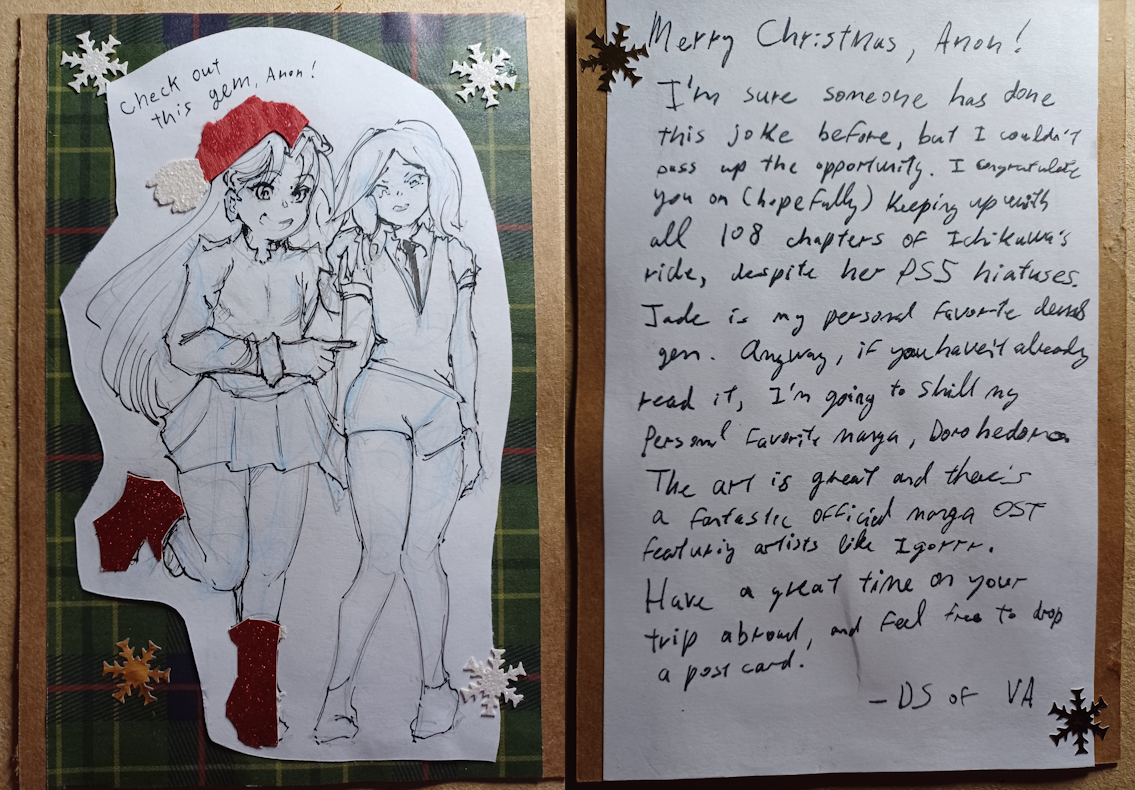 Check out
this gem, Anon!
Merry Christmas, Anon!
I'm sure someone has done
this joke before, but I couldn't
pass up the opportunity. I congratulate
you on (hopefully) keeping up with
all 108 chapters of Ichikawa's
ride, despite her PS5 hiatuses.
Jade is my personal favorite
gem. Anyway, if you haven't already
read it, I'm going to shill my
personal favorite manga, Dorohedoro.
The art is great and there's
a fantastic official manga OST
featuring artists like Igorrr.
Have a great time on your
trip abroad, and feel free to drop
a post card!
-DS of VA